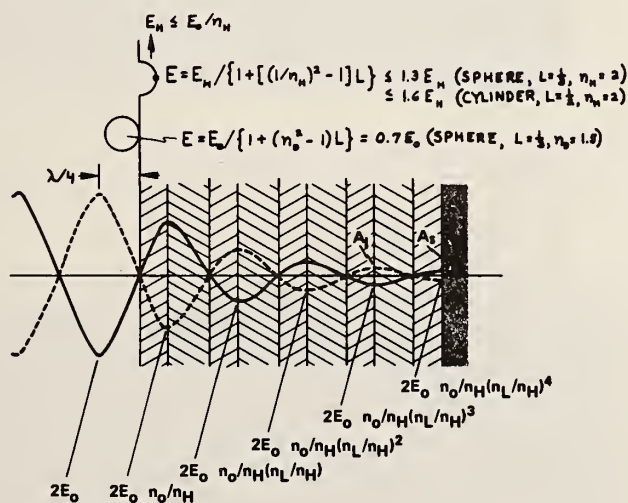 E_H ≤ E_o/n_H
E = E_H/{1+[(1/n_H)²-1]L} ≤ 1.3 E_H (SPHERE, L=⅓, n_H=2)
≤ 1.6 E_H (CYLINDER, L=½, n_H=2)
E = E_o/{1+(n_o²-1)L} = 0.7 E_o (SPHERE, L=⅓, n_o=1.5)
λ/4
A_j
A_s
2E_o n_o/n_H(n_L/n_H)⁴
2E_o n_o/n_H(n_L/n_H)³
2E_o n_o/n_H(n_L/n_H)²
2E_o n_o/n_H(n_L/n_H)
2E_o
2E_o n_o/n_H